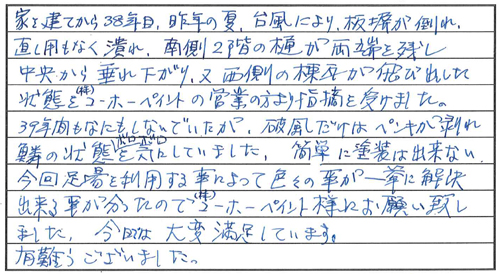 家を建てから38年目、昨年の夏、台風により、板塀が倒れ、
直し用もなく潰れ、南側2階の樋が両端を残し
中央から垂れ下がり、又西側の棟瓦が飛び出した
状態を(株)コーホーペイントの営業の方より指摘を受けました。
39年間もなにもしないでいたが、破風だけはペンキが剥れ
鱗の状態を気にしていました、簡単に塗装は出来ない、
今回足場を利用する事によって色々の事が一挙に解決
出来る事が分ったので(株)コーホーペイント様にお願い致し
ました、今では大変満足しています。
有難うございました。